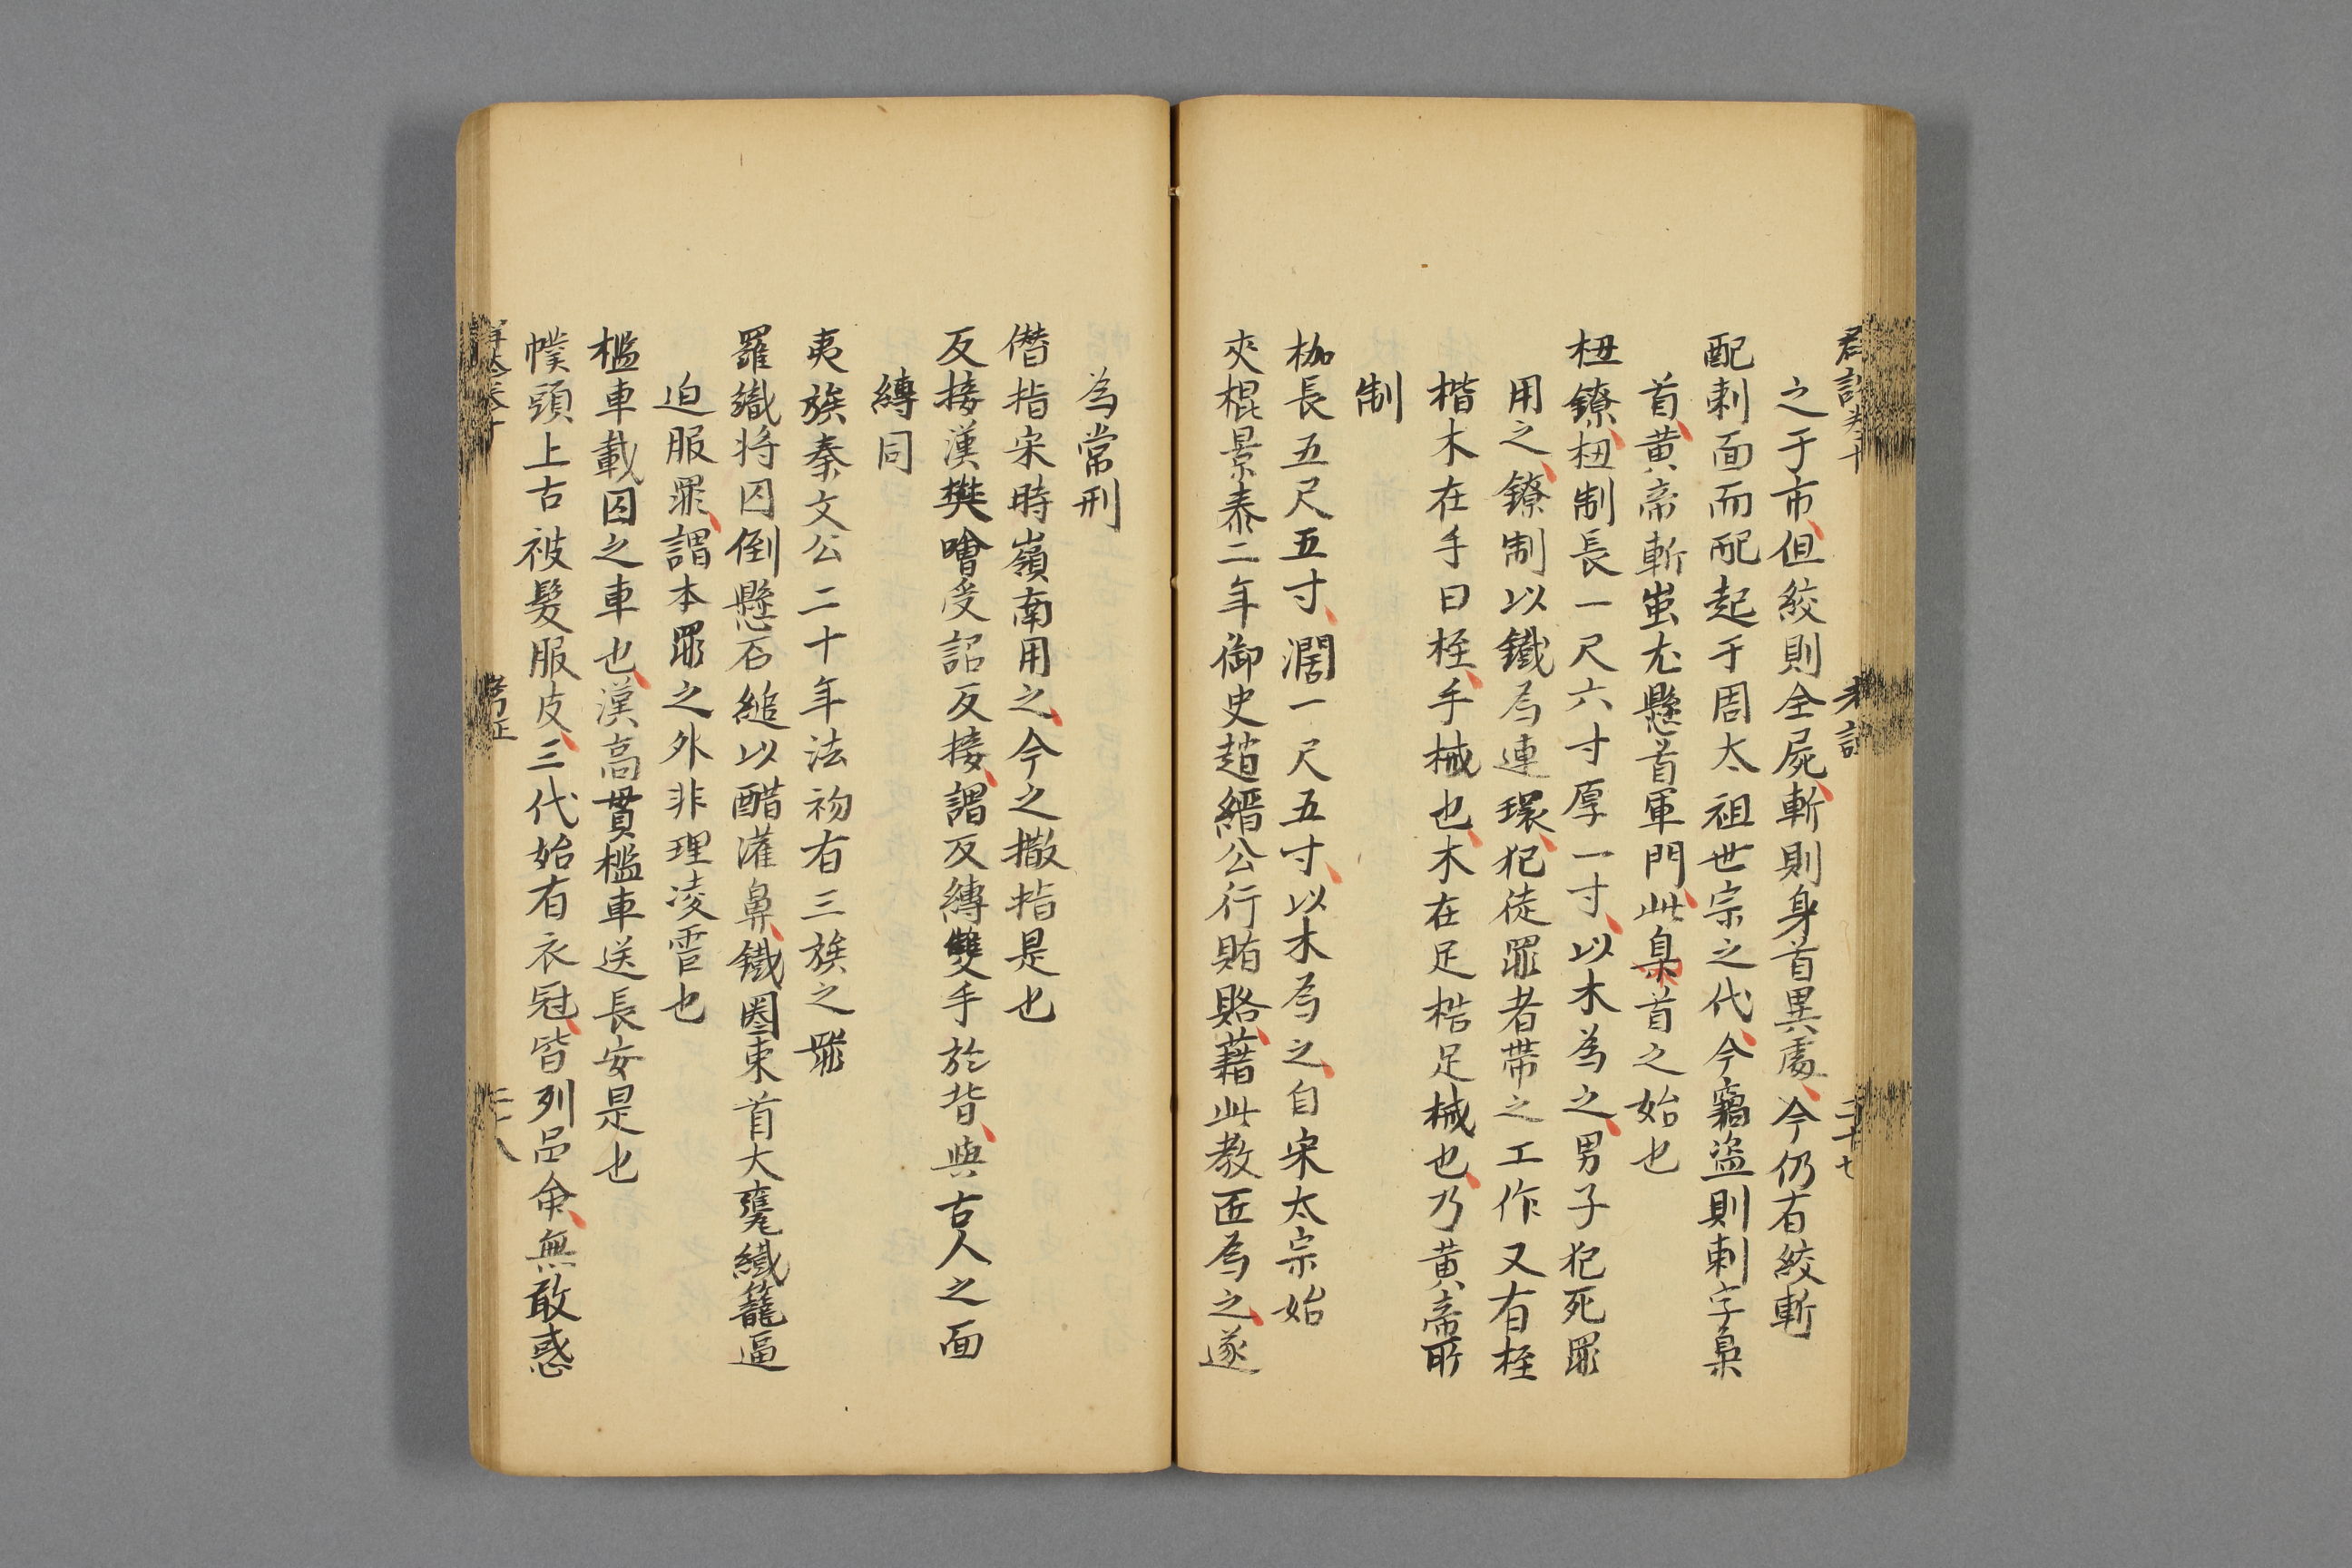 之于市但絞則全屍斬則身首異處今仍有絞斬
配刺面而配起于周太祖世宗之代今竊盜則刺字梟
首黄帝斬蚩尤懸首軍門此梟首之始也
杻鐐杻制長一尺六寸厚一寸以木為之男子犯死罪
用之鐐制以鐵為連環犯徒罪者帶之工作又有桎
楷木在手曰桎手械也木在足梏足械也乃黄帝所
制
枷長五尺五寸濶一尺五寸以木為之自宋太宗始
夾棍景泰二年御史趙縉公行賄賂藉此教匠為之遂
為常刑
僭指宋時嶺南用之今之撒指是也
反接漢樊噲受詔反接謂反縛雙手於背與古人之面
縛同
夷族秦文公二十年法初有三族之罪
羅織将囚倒懸石縋以醋灌鼻鐵圈束首大甕織籠逼
迫服罪謂本罪之外非理凌虐也
檻車載囚之車也漢高貫檻車送長安是也
幞頭上古被髮服皮三代始有衣冠皆列品命無敢惑
卷十
二十八